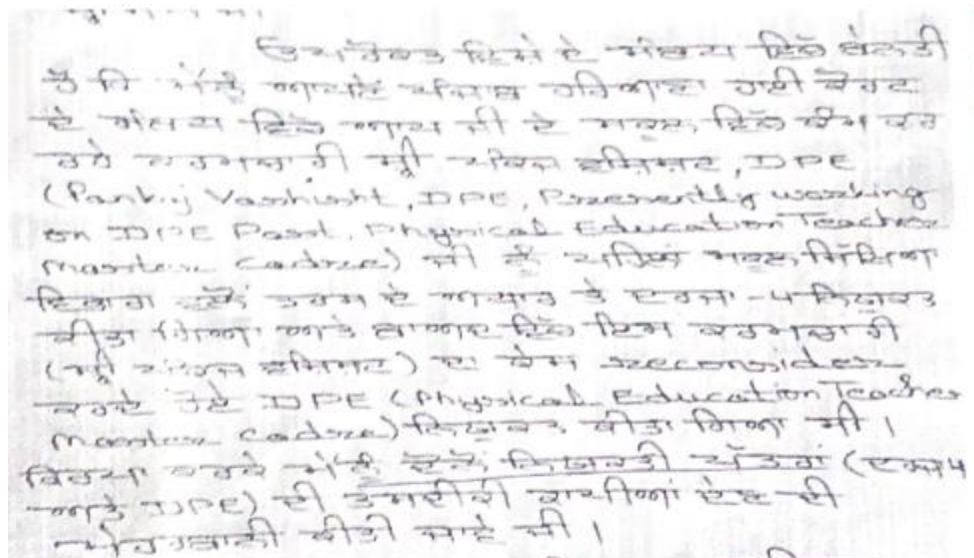 ਉਪਰੋਕਤ ਵਿਸ਼ੇ ਦੇ ਸੰਬਧ ਵਿੱਚ ਬੇਨਤੀ
ਹੈ ਕਿ ਮੈਨੂੰ ਮਾਣਯੋਗ ਪੰਜਾਬ ਹਰਿਆਣਾ ਹਾਈ ਕੋਰਟ
ਦੇ ਸੰਬਧ ਵਿੱਚ ਆਪ ਜੀ ਦੇ ਸਕੂਲ ਵਿੱਚ ਕੰਮ ਕਰ
ਰਹੇ ਕਰਮਚਾਰੀ ਸ੍ਰੀ ਪੰਕਜ ਵਸ਼ਿਸ਼ਟ, DPE
(Pankaj Vashisht, DPE, Presently working
on DPE Post, Physical Education Teacher
Master Cadre) ਜੀ ਨੂੰ ਪਹਿਲਾਂ ਸਕੂਲ ਸਿੱਖਿਆ
ਵਿਭਾਗ ਵਲੋਂ ਤਰਸ ਦੇ ਅਧਾਰ ਤੇ ਦਰਜਾ-4 ਨਿਯੁਕਤ
ਕੀਤਾ ਗਿਆ ਅਤੇ ਬਾਅਦ ਵਿੱਚ ਇਸ ਕਰਮਚਾਰੀ
(ਸ੍ਰੀ ਪੰਕਜ ਵਸ਼ਿਸ਼ਟ) ਦਾ ਕੇਸ reconsider
ਕਰਦੇ ਹੋਏ DPE (Physical Education Teacher
Master Cadre) ਨਿਯੁਕਤ ਕੀਤਾ ਗਿਆ ਸੀ।
ਕਿਰਪਾ ਕਰਕੇ ਮੈਨੂੰ ਦੋਨੋਂ ਨਿਯੁਕਤੀ ਪੱਤਰਾਂ (ਦਰਜਾ 4
ਅਤੇ DPE) ਦੀ ਤਸਦੀਕੀ ਕਾਪੀਆਂ ਦੇਣ ਦੀ
ਕੀਤੀ ਜਾਵੇ ਜੀ।